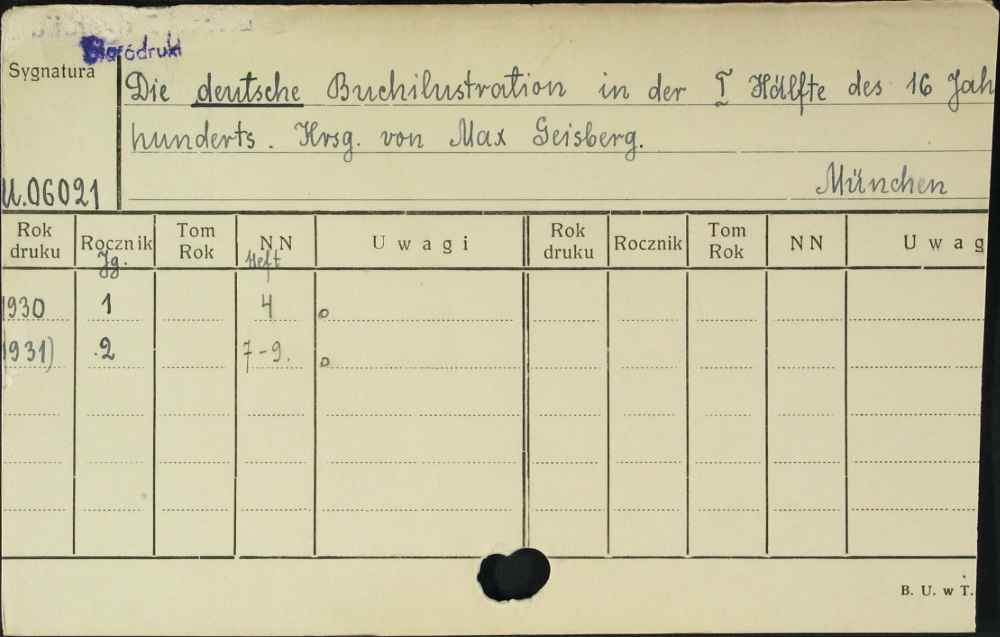 Starodruki
Sygnatura
Die deutsche Buchilustration in der I Hälfte des 16 Jah
hunderts. Hrsg. von Max Geisberg.
U.06021
München
Rok druku Rocznik Tom Rok NN Uwagi Rok druku Rocznik Tom Rok NN Uwag
Jg. Heft
1930 1 4
1931) 2 7-9.
B. U. w T.